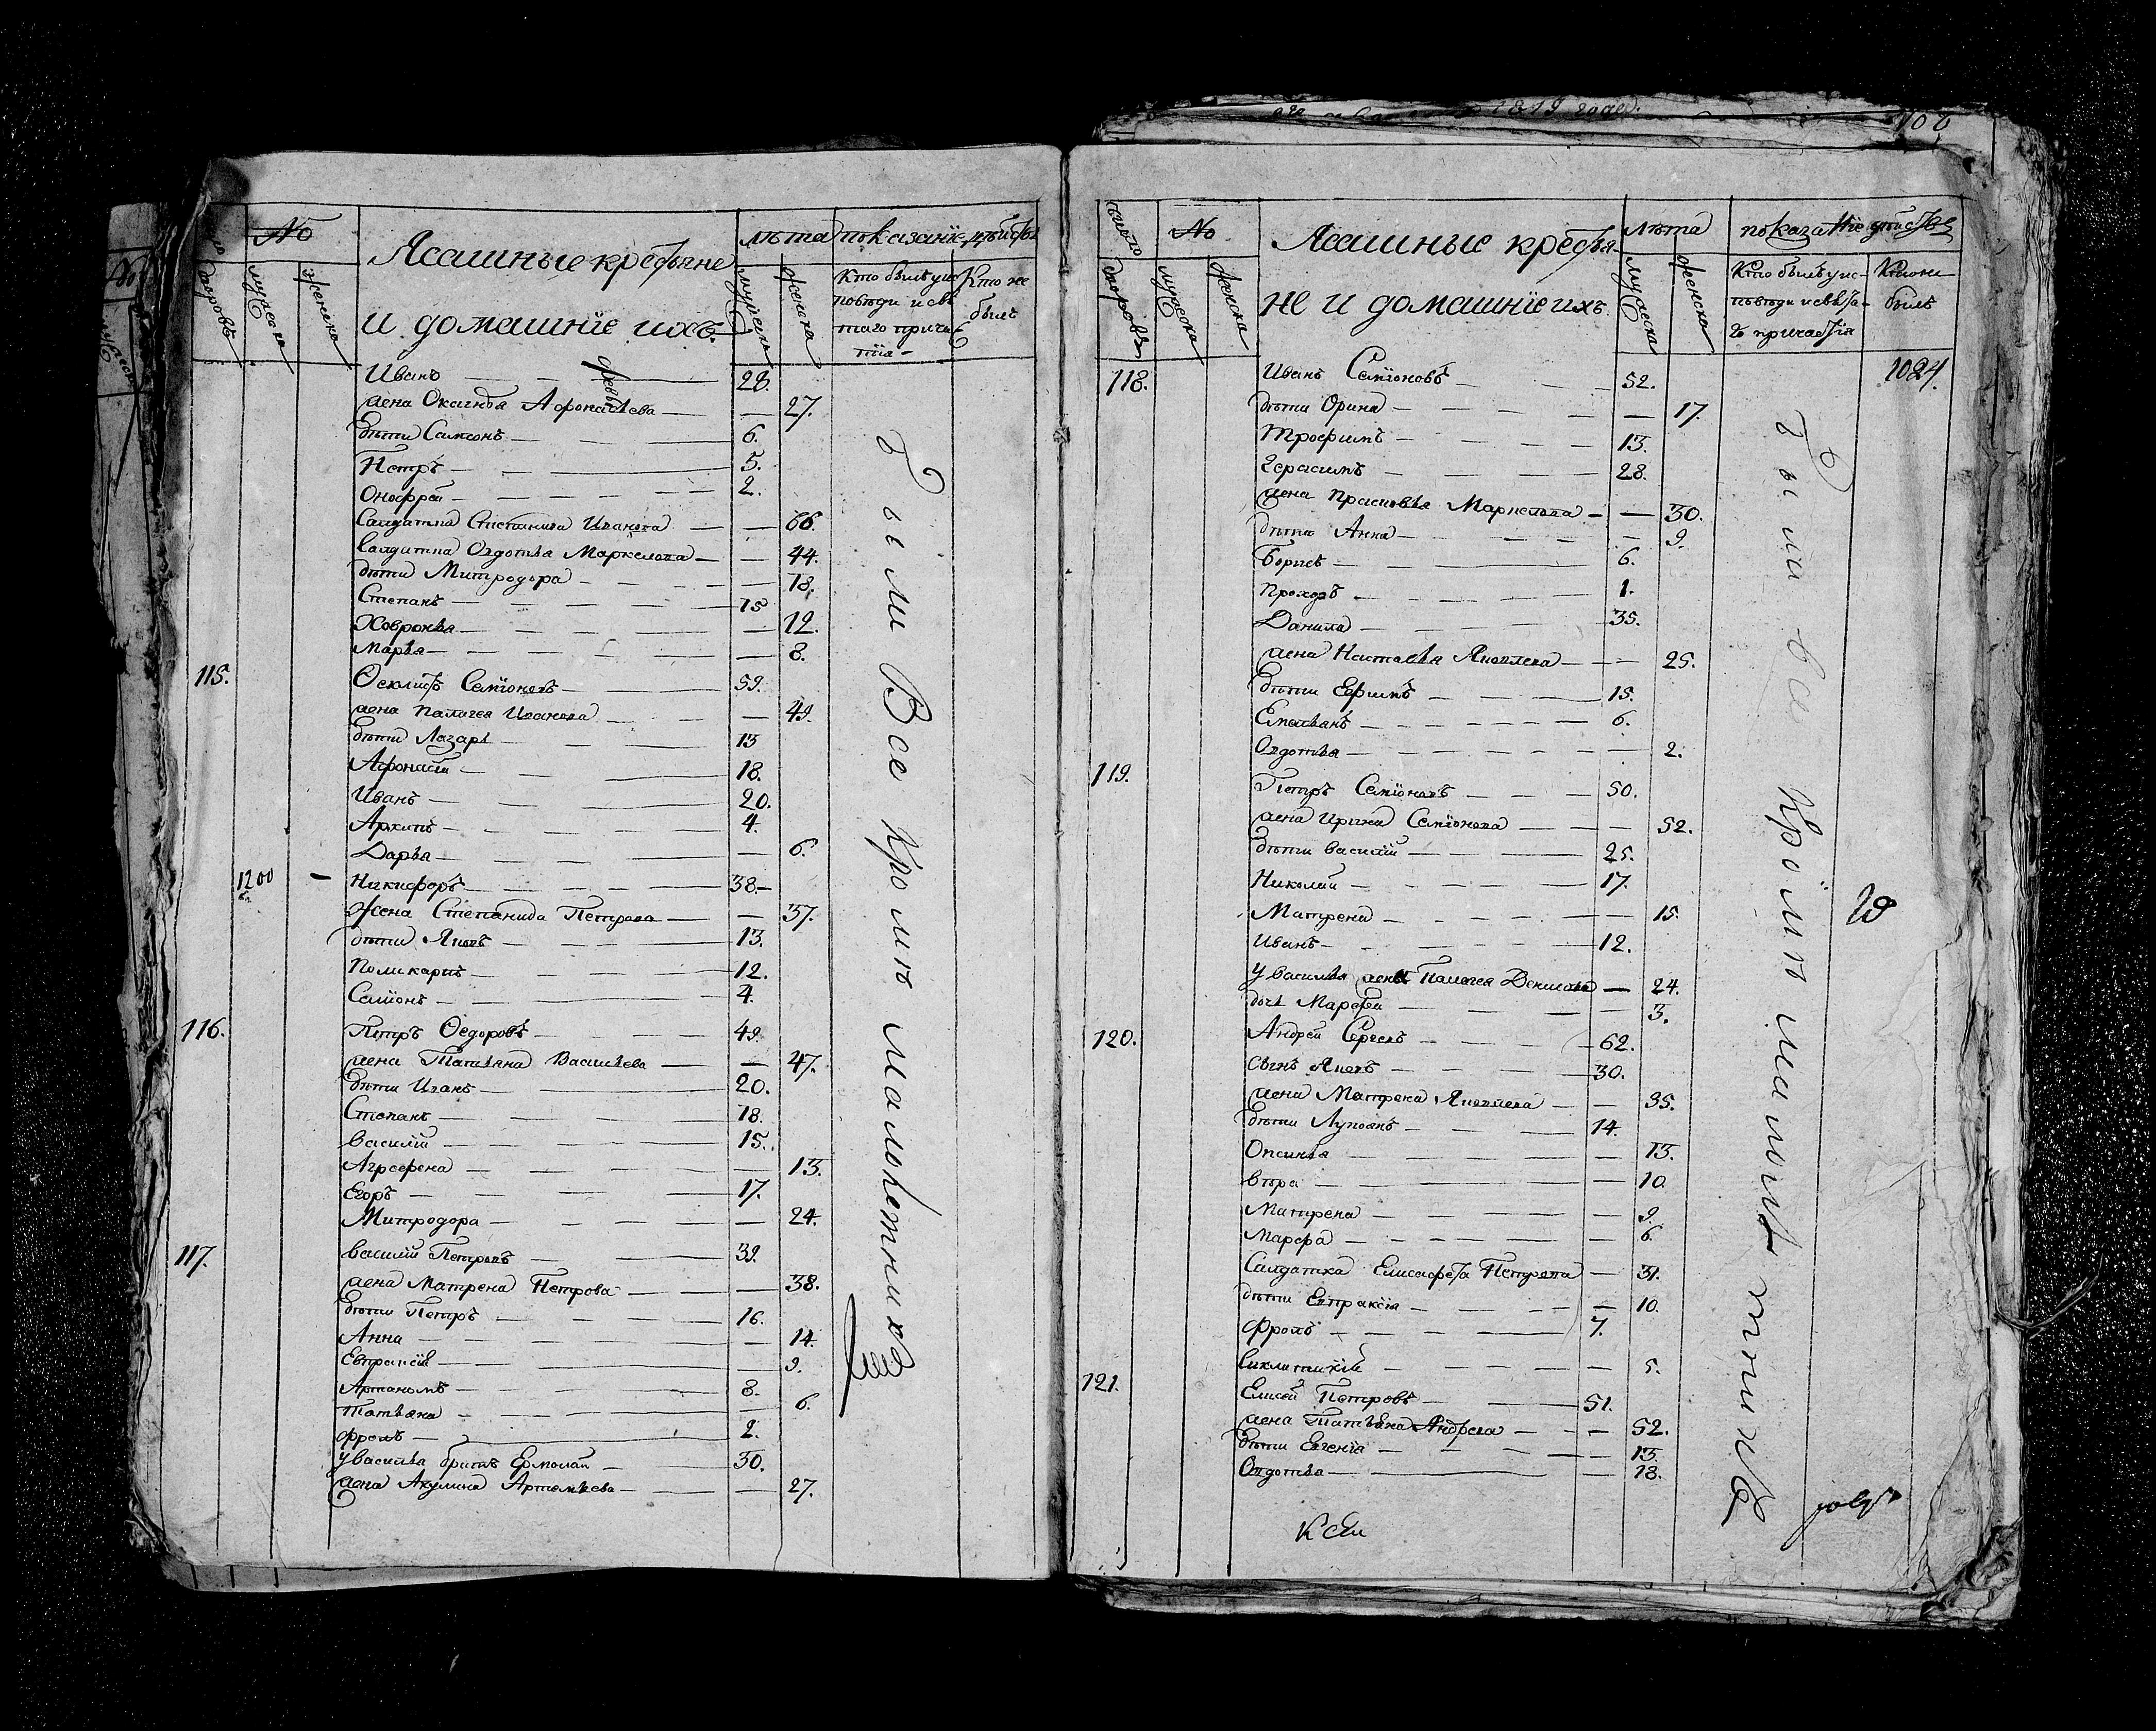 №
Ясашные крестьяне
и домашние ихъ
лѣта
показание действа
дворовъ
мужеска
женска
мужеска
женска
Кто былъ у ис
поведи и свя
таго прича
стія
Кто не
былъ
Иванъ 28.
жена Оксинья Афонасьева 27.
дѣти Самсонъ 6.
Петръ 5.
Онофрей 2.
Салдатка Степанида Иванова 66.
Салдатка Овдотья Маркелова 44.
дѣти Митродора 18.
Степанъ 15
Ховронья 12.
Марья 8.
115. Феклистъ Семіоновъ 59.
жена Палагея Иванова 49.
дѣти Лазарь 13
Афонасей 18.
Иванъ 20.
Архипъ 4.
Дарья 6.
1200 Никифоръ 38.
жена Степанида Петрова 37.
дѣти Яковъ 13.
Поликарпъ 12.
Семіонъ 4.
116. Петръ Федоровъ 49.
жена Татьяна Васильева 47.
дѣти Иванъ 20.
Степанъ 18.
Василій 15.
Агрофена 13.
Егоръ 17.
Митродора 24.
117. Василій Петровъ 39.
жена Матрена Петрова 38.
дѣти Петръ 16.
Анна 14.
Евпраксія 9.
Артамонъ 8.
Татьяна 6.
Фролъ 2.
у Василья братъ Ермолай 30.
жена Акулина Артемьева 27.
Были Все Кроме малолетникъ
1819 году.
число
дворовъ
№
мужеска
женска
Ясашные крестья
не и домашніе ихъ
лѣта
мужеска
женска
показаніе дѣйства
Кто былъ у ис
поведи и свята
го причастія
Кто не
былъ
1024.
118. Иванъ Семіоновъ 52.
дѣти Орина 17.
Трофимъ 13.
Герасимъ 28.
жена Прасковья Маркелова 30.
дѣти Анна 9.
Борисъ 6.
Прохоръ 1.
Данила 35.
жена Настасья Яковлева 25.
дѣти Ефимъ 15.
Емельянъ 6.
Овдотья 2.
119. Петръ Семіоновъ 50.
жена Ирина Семіонова 52.
дѣти Василій 25.
Николай 17.
Матрена 15.
Иванъ 12.
у Василья жена Палагея Денисова 24.
дочь Марфа 3.
120. Андрей Сергеевъ 62.
сынъ Яковъ 30.
жена Матрена Яковлева 35.
дѣти Лупоянъ 14.
Оксинья 13.
Вѣра 10.
Матрена 9.
Марфа 6.
Салдатка Елисафета Петрова 31.
дѣти Евпраксія 10.
Фролъ 7.
5.
121. Елисей Петровъ 51.
жена Татьяна Андреева 52.
дѣти Евгенія 13.
Овдотья 18.
Были все Кроме малолѣтникъ
К сей